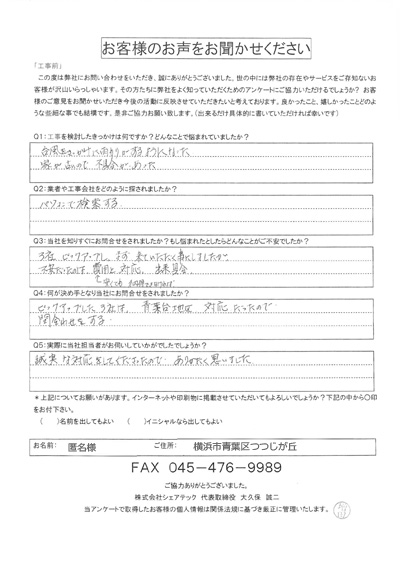 お客様のお声をお聞かせください
「工事前」
この度は弊社にお問い合わせをいただき、誠にありがとうございます。世の中には弊社の存在やサービスをご存知ないお
客様が沢山いらっしゃいます。その方たちに弊社をよく知っていただくためのアンケートにご協力いただけるでしょうか? お客
様のご意見をお聞かせいただき今後の活動に反映させていただきたいと考えております。良かったこと、嬉しかったことどのよ
うな些細な事でも結構です。是非ご協力お願い致します。(出来るだけ具体的に書いていただければ幸いです)
Q1:工事を検討したきっかけは何ですか?どんなことで悩まれていましたか?
Q2:業者や工事会社をどのように探されましたか?
パソコンで検索する
Q3:当社を知りすぐにお問合せをされましたか?もし悩まれたとしたらどんなことがご不安でしたか?
3社 ピックアップし、まず 来ていただく事にしましたが
不安だったのは、費用と対応、出来具合
Q4:何が決め手となり当社にお問合せをされましたか?
ピックアップした3社は、青葉台地区 対応だったので
問合わせをする
Q5:実際に当社担当者がお伺いしていかがでしたでしょうか?
誠実な対応をしてくださったので ありがたく思いました
*上記についてお願いがあります。インターネットや印刷物に掲載させていただいてもよろしいでしょうか?下記の中から〇印
をお付下さい。
( )名前を出してもよい ( )イニシャルなら出してもよい
お名前: 匿名様 ご住所: 横浜市青葉区つつじが丘
FAX 045-476-9989
ご協力ありがとうございました。
株式会社シェアテック 代表取締役 大久保 誠二
当アンケートで取得したお客様の個人情報は関係法規に基づき厳正に管理いたします。